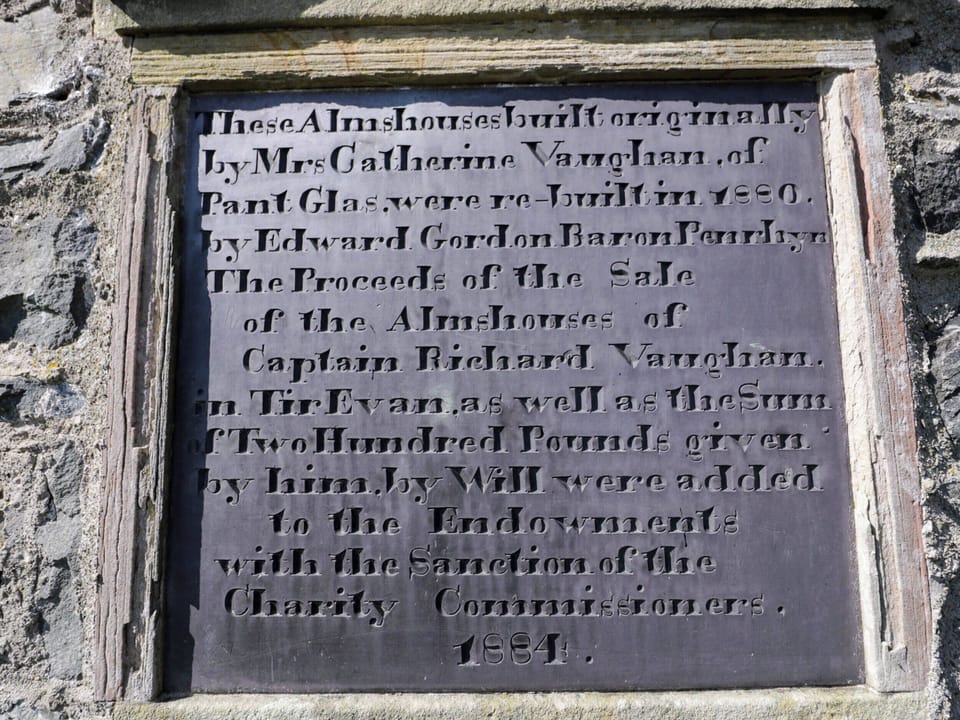 These Almshouses built originally
by Mrs Catherine Vaughan, of
Pant Glas, were re-built in 1880.
by Edward Gordon Baron Penrhyn
The Proceeds of the Sale
of the Almshouses of
Captain Richard Vaughan.
in Tir Evan, as well as the Sum
of Two Hundred Pounds given
by him, by Will were added
to the Endowments
with the Sanction of the
Charity Commissioners.
1884.